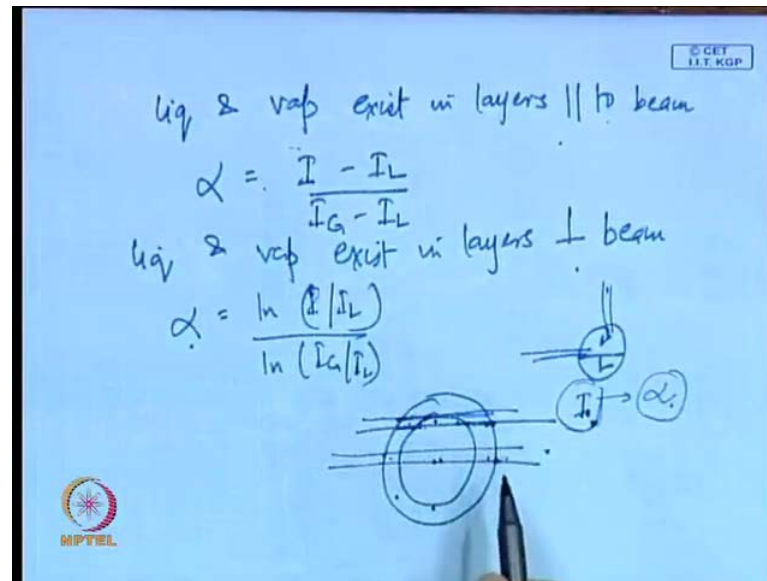 © CET
I.I.T. KGP
liq & vap exist in layers || to beam
α = I - I_L / I_G - I_L
liq & vap exist in layers ⊥ beam
α = ln (I/I_L) / ln (I_G/I_L)
L
I → α
NPTEL